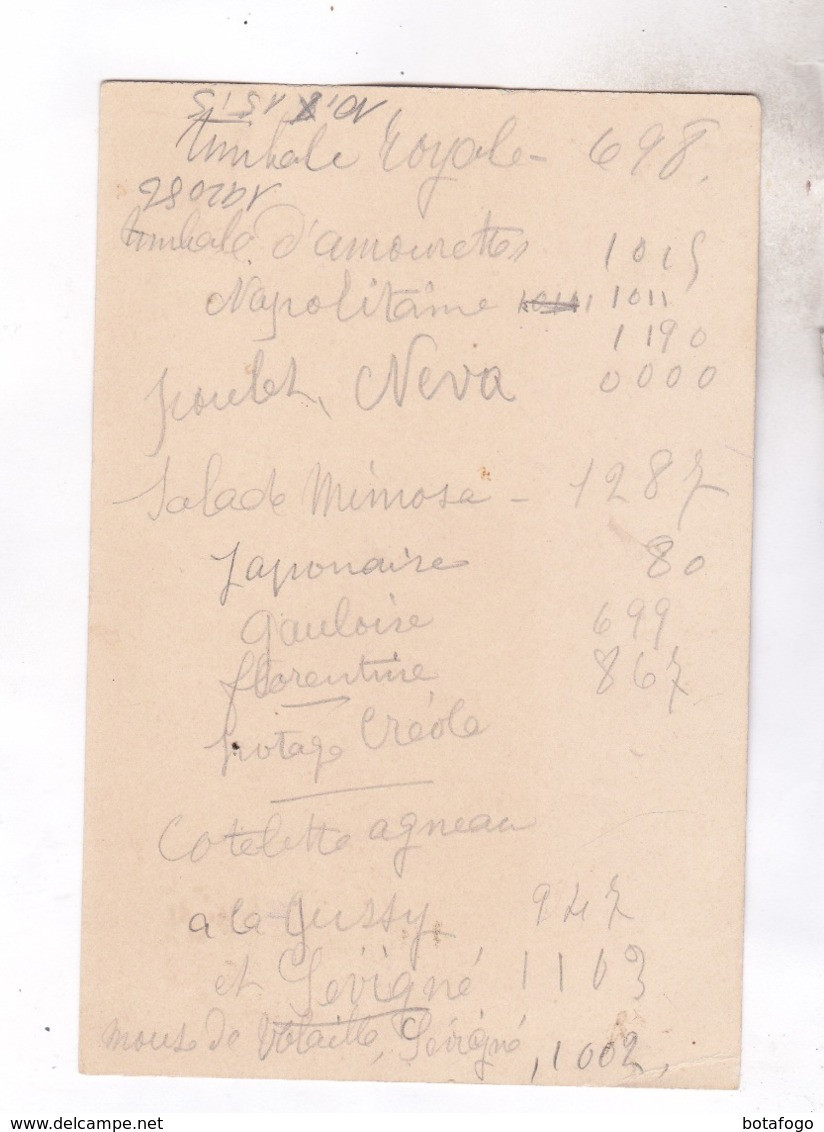 timbale Royale - 698.
timbale d'amourettes 1015
Napolitaine 1011
1190
poulet, Neva 0000
Salade Mimosa - 1287
Japonaise 80
gauloise 699
florentine 867
potage Créole
Cotelette agneau
a la Jussy 947
et Sévigné 1103
mouse de Volaille, Sévigné, 1002.
www.delcampe.net
botafogo